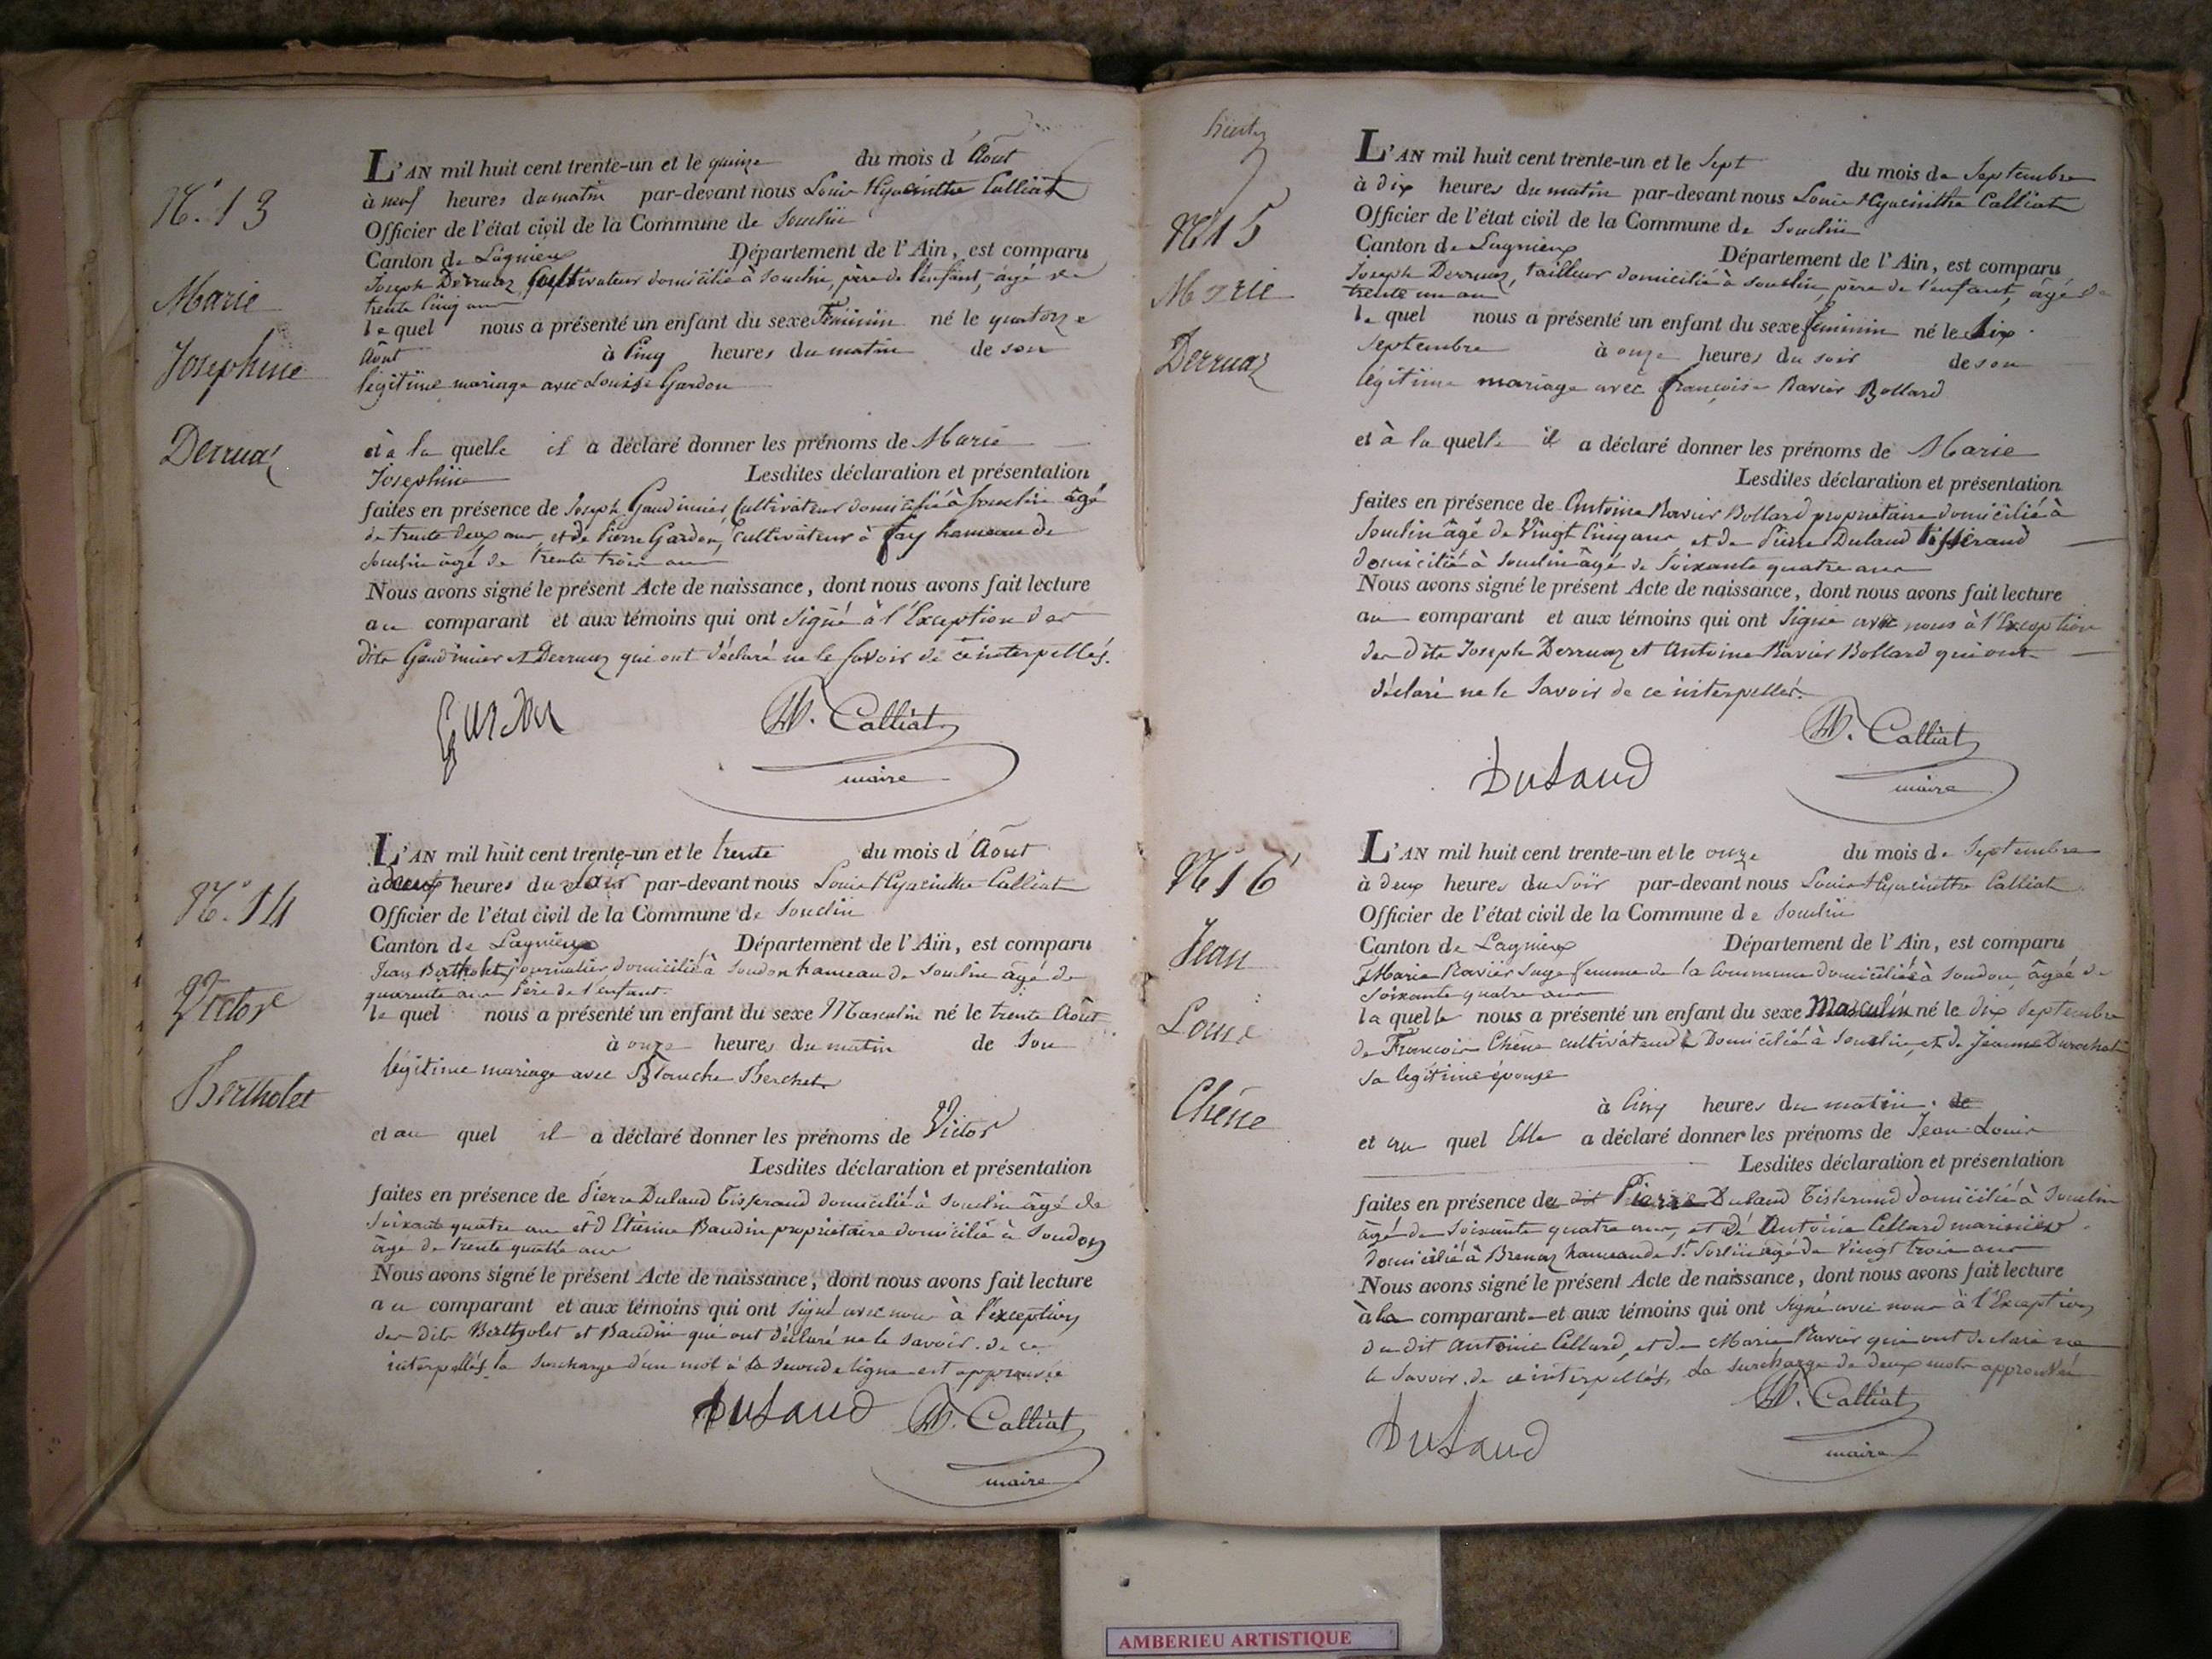 N.° 13
Marie
Josephine
Derruaz
L'AN mil huit cent trente-un et le quinze du mois d'Août
à neuf heures du matin par-devant nous Louis Hyacinthe Calliat
Officier de l'état civil de la Commune de Souclin
Canton de Lagnieux Département de l'Ain, est comparu
Joseph Derruaz Cultivateur domicilié à Souclin, père de l'enfant, âgé de
trente Cinq ans
le quel nous a présenté un enfant du sexe Féminin né le quatorze
Août à Cinq heures du matin de son
légitime mariage avec Louise Gardon
et à la quelle il a déclaré donner les prénoms de Marie
Josephine Lesdites déclaration et présentation
faites en présence de Joseph Gaudinier, Cultivateur domicilié à Souclin âgé
de trente deux ans, et de Pierre Gardon, Cultivateur à fay hameau de
Souclin âgé de trente trois ans
Nous avons signé le présent Acte de naissance, dont nous avons fait lecture
au comparant et aux témoins qui ont Signé à l'Exception des
dits Gaudinier et Derruaz qui ont déclaré ne le savoir de ce interpellés.
Gardon H. Calliat
maire
N.° 14
Victor
Bertholet
L'AN mil huit cent trente-un et le trente du mois d'Août
à deux heures du soir par-devant nous Louis Hyacinthe Calliat
Officier de l'état civil de la Commune de Souclin
Canton de Lagnieux Département de l'Ain, est comparu
Jean Bertholet, journalier, domicilié à Soudon hameau de Souclin âgé de
quarente ans Père de l'enfant.
le quel nous a présenté un enfant du sexe Masculin né le trente Août
à onze heures du matin de Son
légitime mariage avec Blanche Berchet
et au quel il a déclaré donner les prénoms de Victor
Lesdites déclaration et présentation
faites en présence de Pierre Dulaud Tisserand domicilié à Souclin âgé de
Soixante quatre ans et d'Etienne Baudin propriétaire domicilié à Soudon
âgé de trente quatre ans
Nous avons signé le présent Acte de naissance, dont nous avons fait lecture
au comparant et aux témoins qui ont Signé avec nous à l'exception
des dits Bertholet et Baudin qui ont déclaré ne le savoir. de ce
interpellés. la surcharge d'un mot à la seconde ligne est approuvée
Dulaud H. Calliat
maire
N.° 15
Marie
Derruaz
L'AN mil huit cent trente-un et le Sept du mois de Septembre
à dix heures du matin par-devant nous Louis Hyacinthe Calliat
Officier de l'état civil de la Commune de Souclin
Canton de Lagnieux Département de l'Ain, est comparu
Joseph Derruaz, tailleur domicilié à Souclin, père de l'enfant, âgé de
trente un ans
le quel nous a présenté un enfant du sexe féminin né le Six
Septembre à onze heures du soir de son
légitime mariage avec françoise Ravier Bollard
et à la quelle il a déclaré donner les prénoms de Marie
Lesdites déclaration et présentation
faites en présence de Antoine Ravier Bollard propriétaire domicilié à
Souclin âgé de Vingt Cinq ans et de Pierre Dulaud tisserand
domicilié à Souclin âgé de Soixante quatre ans
Nous avons signé le présent Acte de naissance, dont nous avons fait lecture
au comparant et aux témoins qui ont Signé avec nous à l'Exception
des dits Joseph Derruaz et Antoine Ravier Bollard qui ont
déclaré ne le Savoir de ce interpellés.
H. Calliat
Dulaud maire
N.° 16
Jean
Louis
Chêne
L'AN mil huit cent trente-un et le onze du mois de Septembre
à deux heures du Soir par-devant nous Louis Hyacinthe Calliat
Officier de l'état civil de la Commune de Souclin
Canton de Lagnieux Département de l'Ain, est comparu
Marie Ravier Sage femme de la Commune domiciliée à Soudon, âgée de
Soixante quatre ans
la quelle nous a présenté un enfant du sexe Masculin né le dix Septembre
de François Chêne cultivateur Domicilié à Souclin, et de Jeanne Durochat
sa legitime épouse
à Cinq heures du matin. de
et au quel Elle a déclaré donner les prénoms de Jean-Louis
Lesdites déclaration et présentation
faites en présence de dit Pierre Dulaud Tisserand domicilié à Souclin
âgé de Soixante quatre ans, et de Antoine Cellard marinier
domicilié à Brenaz hameau de St. Sorlin âgé de Vingt trois ans
Nous avons signé le présent Acte de naissance, dont nous avons fait lecture
à la comparant et aux témoins qui ont Signé avec nous à l'Exception
du dit Antoine Cellard, et de Marie Ravier qui ont déclaré ne
le savoir. de ce interpellés, la surcharge de deux mots approuvée
H. Calliat
Dulaud maire
AMBERIEU ARTISTIQUE